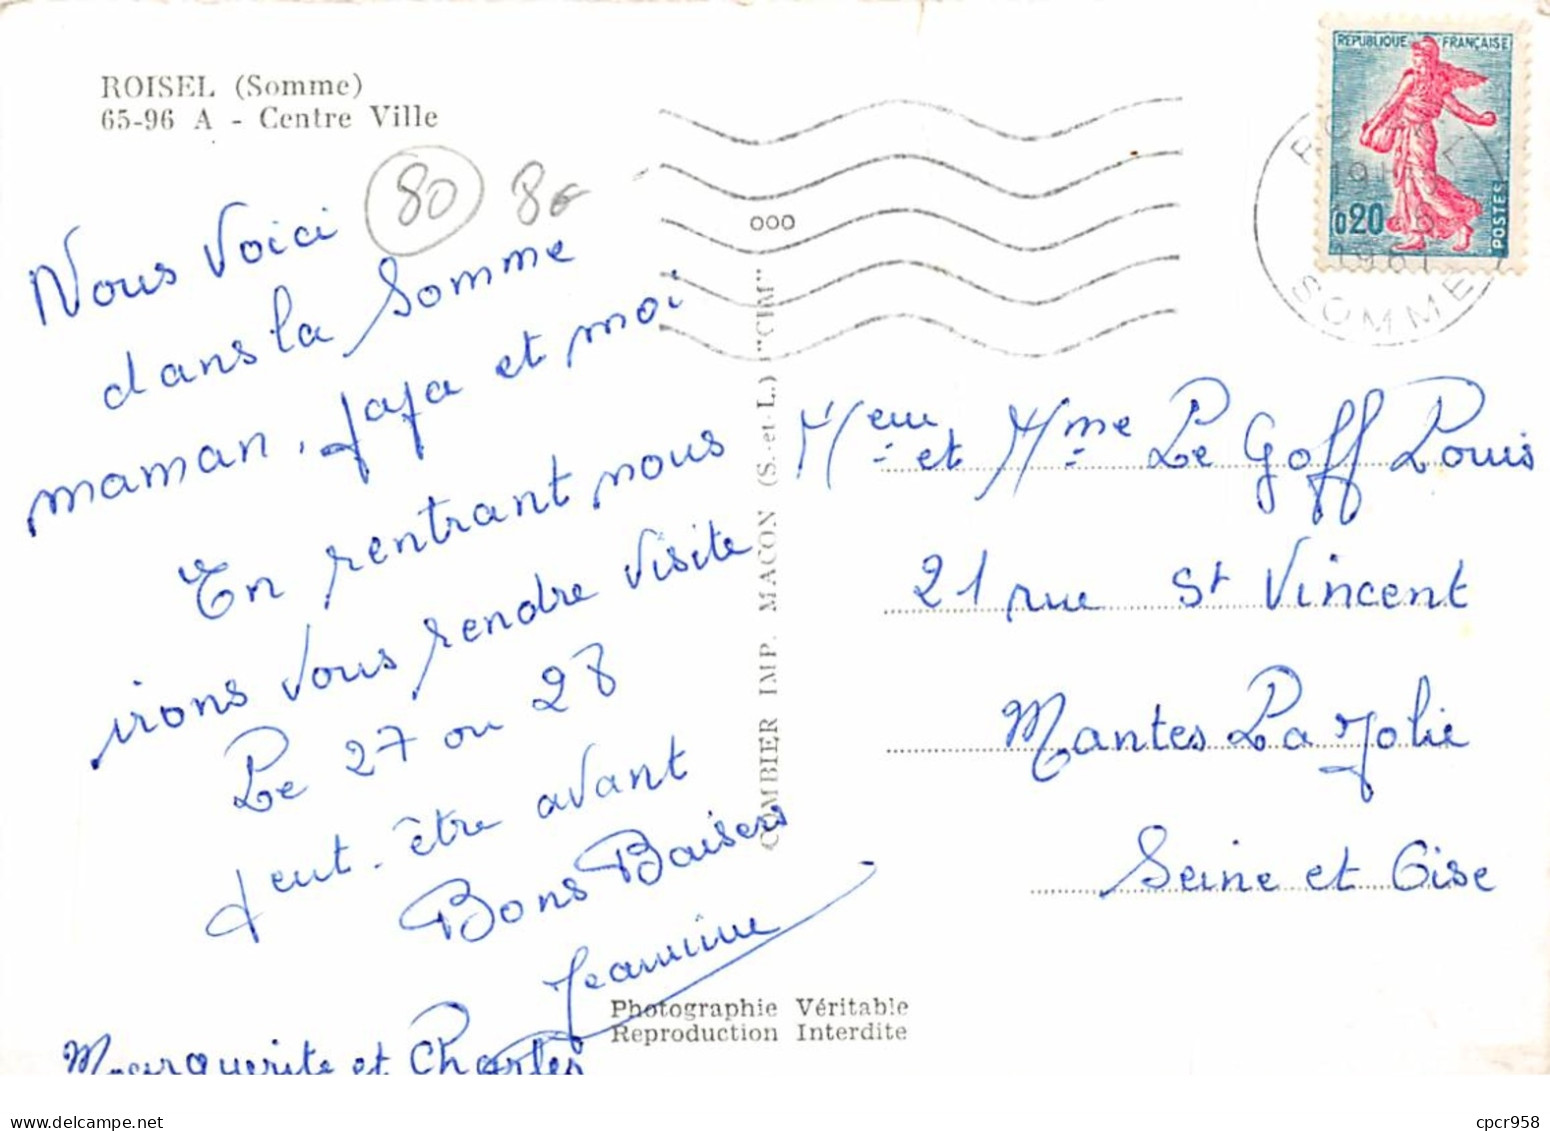 ROISEL (Somme)
65-96 A - Centre Ville
80
8€
Nous Voici
dans la Somme
maman, papa et moi
En rentrant nous
irons vous rendre visite
Le 27 ou 28
peut-être avant
Bons Baisers
Jeannine
Marguerite et Charles
COMBIER IMP. MACON (S.-et-L.) "CIM"
Photographie Véritable
Reproduction Interdite
000
REPUBLIQUE FRANÇAISE
0,20
POSTES
SOMME
Meur et Mme Le Goff Louis
21 rue St Vincent
Mantes La Jolie
Seine et Oise
cpcr958